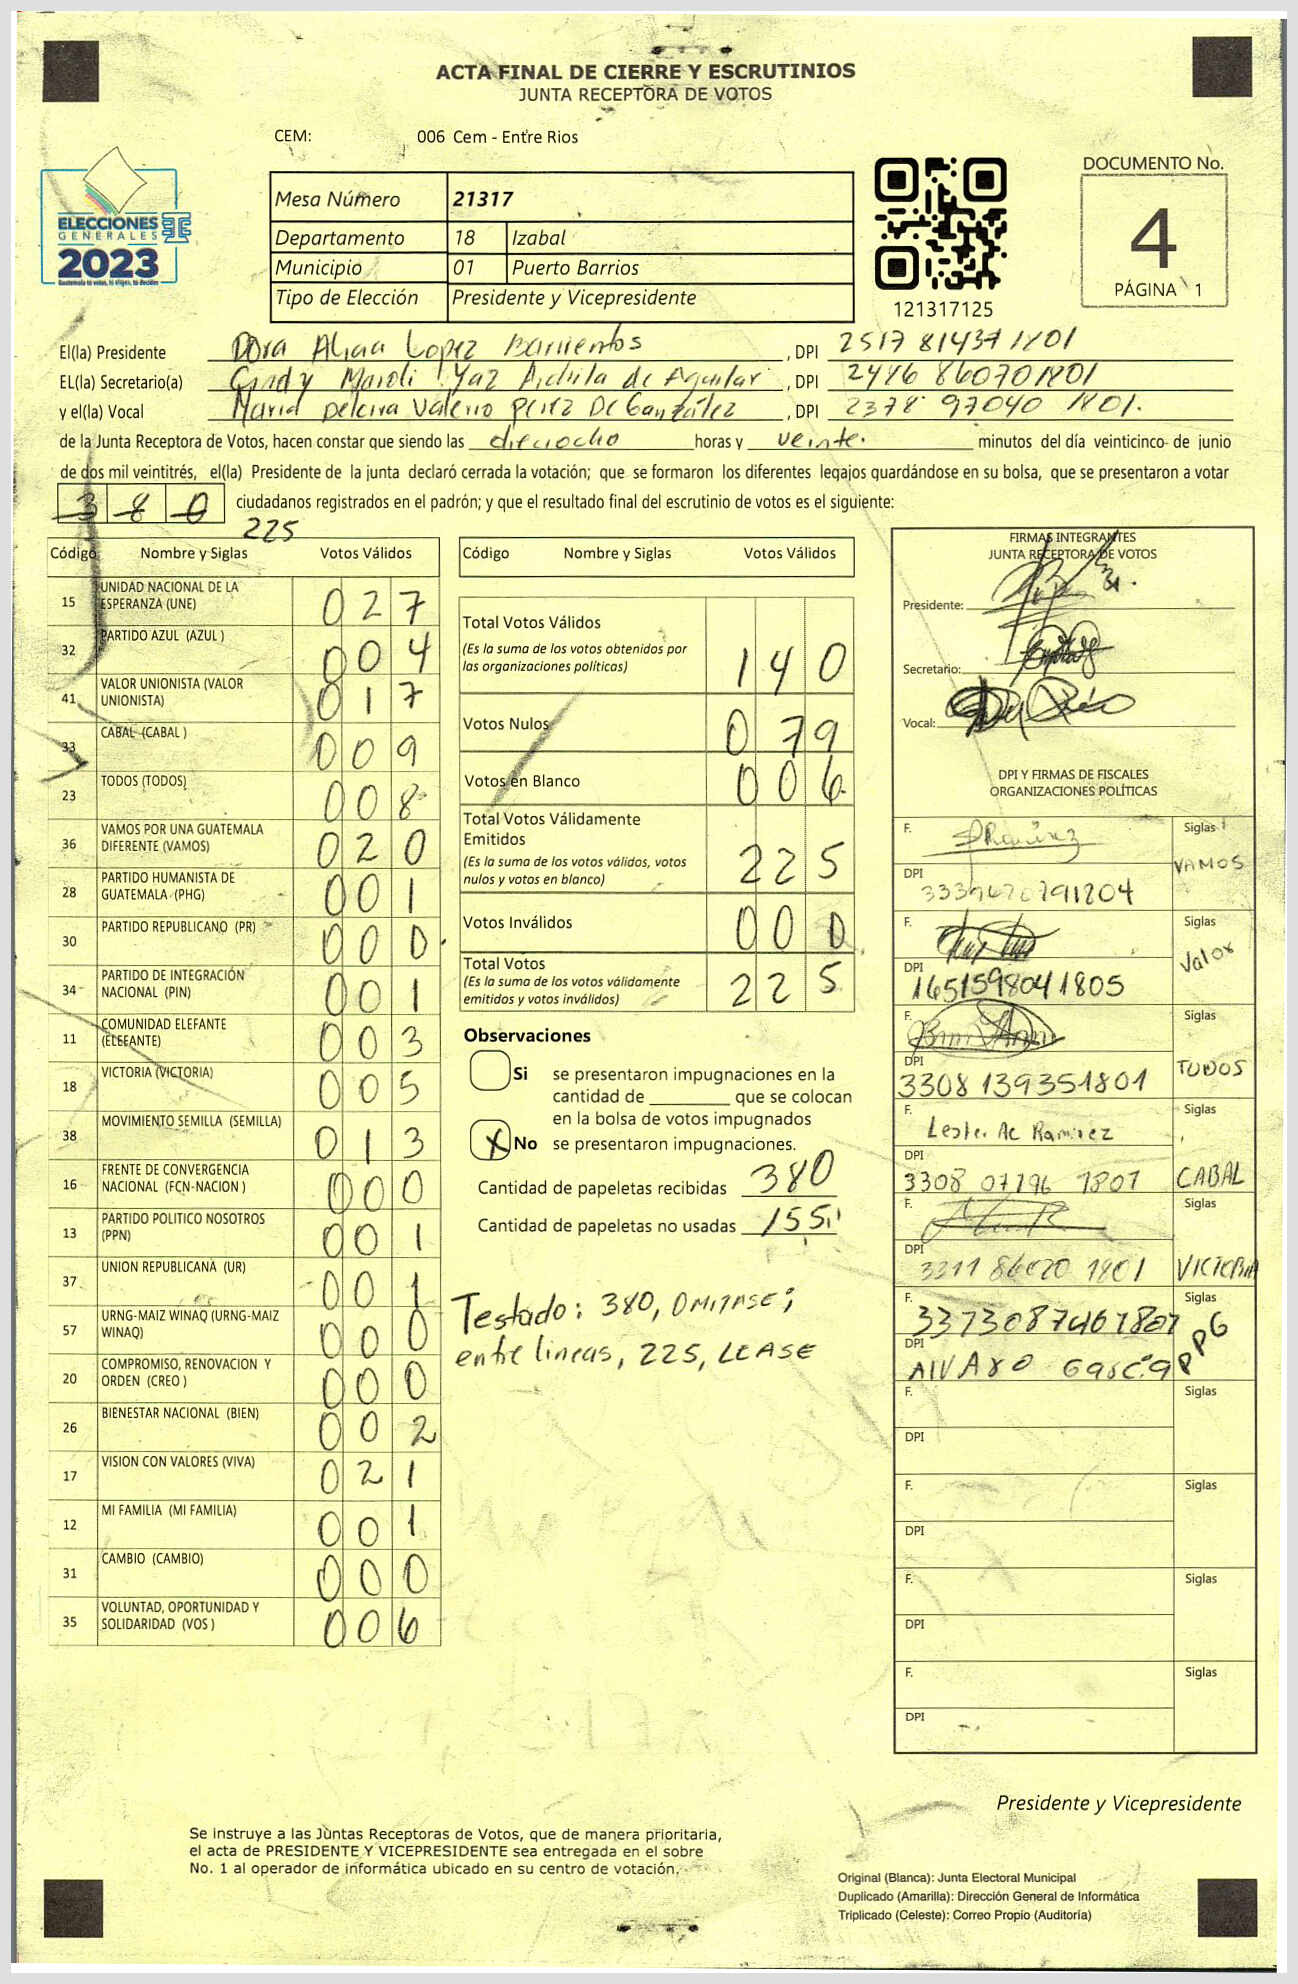 ACTA FINAL DE CIERRE Y ESCRUTINIOS
JUNTA RECEPTORA DE VOTOS
CEM: 006 Cem - Entre Rios
ELECCIONES
GENERALES
2023
Guatemala tu votas, tu eliges, tu decides
Mesa Número 21317
Departamento 18 Izabal
Municipio 01 Puerto Barrios
Tipo de Elección Presidente y Vicepresidente
121317125
DOCUMENTO No.
4
PÁGINA 1
El(la) Presidente Dora Alicia Lopez Barrientos, DPI 2517 81437 1801
EL(la) Secretario(a) Maroli Yaz de Aguilar, DPI 2446 860701801
y el(la) Vocal Maria Valerio Perez De González, DPI 2378 97040 1801.
de la Junta Receptora de Votos, hacen constar que siendo las dieciocho horas y veinte. minutos del día veinticinco de junio
de dos mil veintitrés, el(la) Presidente de la junta declaró cerrada la votación; que se formaron los diferentes legajos guardándose en su bolsa, que se presentaron a votar
380 ciudadanos registrados en el padrón; y que el resultado final del escrutinio de votos es el siguiente:
225
Código Nombre y Siglas Votos Válidos
15 UNIDAD NACIONAL DE LA ESPERANZA (UNE) 027
32 PARTIDO AZUL (AZUL ) 004
41 VALOR UNIONISTA (VALOR UNIONISTA) 017
33 CABAL (CABAL ) 009
23 TODOS (TODOS) 008
36 VAMOS POR UNA GUATEMALA DIFERENTE (VAMOS) 020
28 PARTIDO HUMANISTA DE GUATEMALA (PHG) 001
30 PARTIDO REPUBLICANO (PR) 000
34 PARTIDO DE INTEGRACIÓN NACIONAL (PIN) 001
11 COMUNIDAD ELEFANTE (ELEFANTE) 003
18 VICTORIA (VICTORIA) 005
38 MOVIMIENTO SEMILLA (SEMILLA) 013
16 FRENTE DE CONVERGENCIA NACIONAL (FCN-NACION ) 000
13 PARTIDO POLITICO NOSOTROS (PPN) 001
37 UNION REPUBLICANA (UR) 001
57 URNG-MAIZ WINAQ (URNG-MAIZ WINAQ) 000
20 COMPROMISO, RENOVACION Y ORDEN (CREO ) 000
26 BIENESTAR NACIONAL (BIEN) 002
17 VISION CON VALORES (VIVA) 021
12 MI FAMILIA (MI FAMILIA) 001
31 CAMBIO (CAMBIO) 000
35 VOLUNTAD, OPORTUNIDAD Y SOLIDARIDAD (VOS ) 006
Código Nombre y Siglas Votos Válidos
Total Votos Válidos 140
(Es la suma de los votos obtenidos por
las organizaciones políticas)
Votos Nulos 079
Votos en Blanco 006
Total Votos Válidamente
Emitidos 225
(Es la suma de los votos válidos, votos
nulos y votos en blanco)
Votos Inválidos 000
Total Votos 225
(Es la suma de los votos válidamente
emitidos y votos inválidos)
Observaciones
Si se presentaron impugnaciones en la
cantidad de ________ que se colocan
en la bolsa de votos impugnados
X No se presentaron impugnaciones.
Cantidad de papeletas recibidas 380
Cantidad de papeletas no usadas 155
Testado: 380, OMITASE;
entre lineas, 225, LEASE
FIRMAS INTEGRANTES
JUNTA RECEPTORA DE VOTOS
Presidente:
Secretario:
Vocal:
DPI Y FIRMAS DE FISCALES
ORGANIZACIONES POLÍTICAS
F. Ramirez Siglas
DPI VAMOS
F. Siglas
DPI 1651598041805 Valor
F. Siglas
DPI 3308 139351801 TODOS
F. Lester Ramirez Siglas
DPI 3308 07796 1807 CABAL
F. Siglas
DPI 3311 86020 1801 VICTORIA
F. 3373087467807 Siglas
DPI Alvaro Garcia PPG
F. Siglas
DPI
F. Siglas
DPI
F. Siglas
DPI
F. Siglas
DPI
Presidente y Vicepresidente
Se instruye a las Juntas Receptoras de Votos, que de manera prioritaria,
el acta de PRESIDENTE Y VICEPRESIDENTE sea entregada en el sobre
No. 1 al operador de informática ubicado en su centro de votación.
Original (Blanca): Junta Electoral Municipal
Duplicado (Amarilla): Dirección General de Informática
Triplicado (Celeste): Correo Propio (Auditoría)